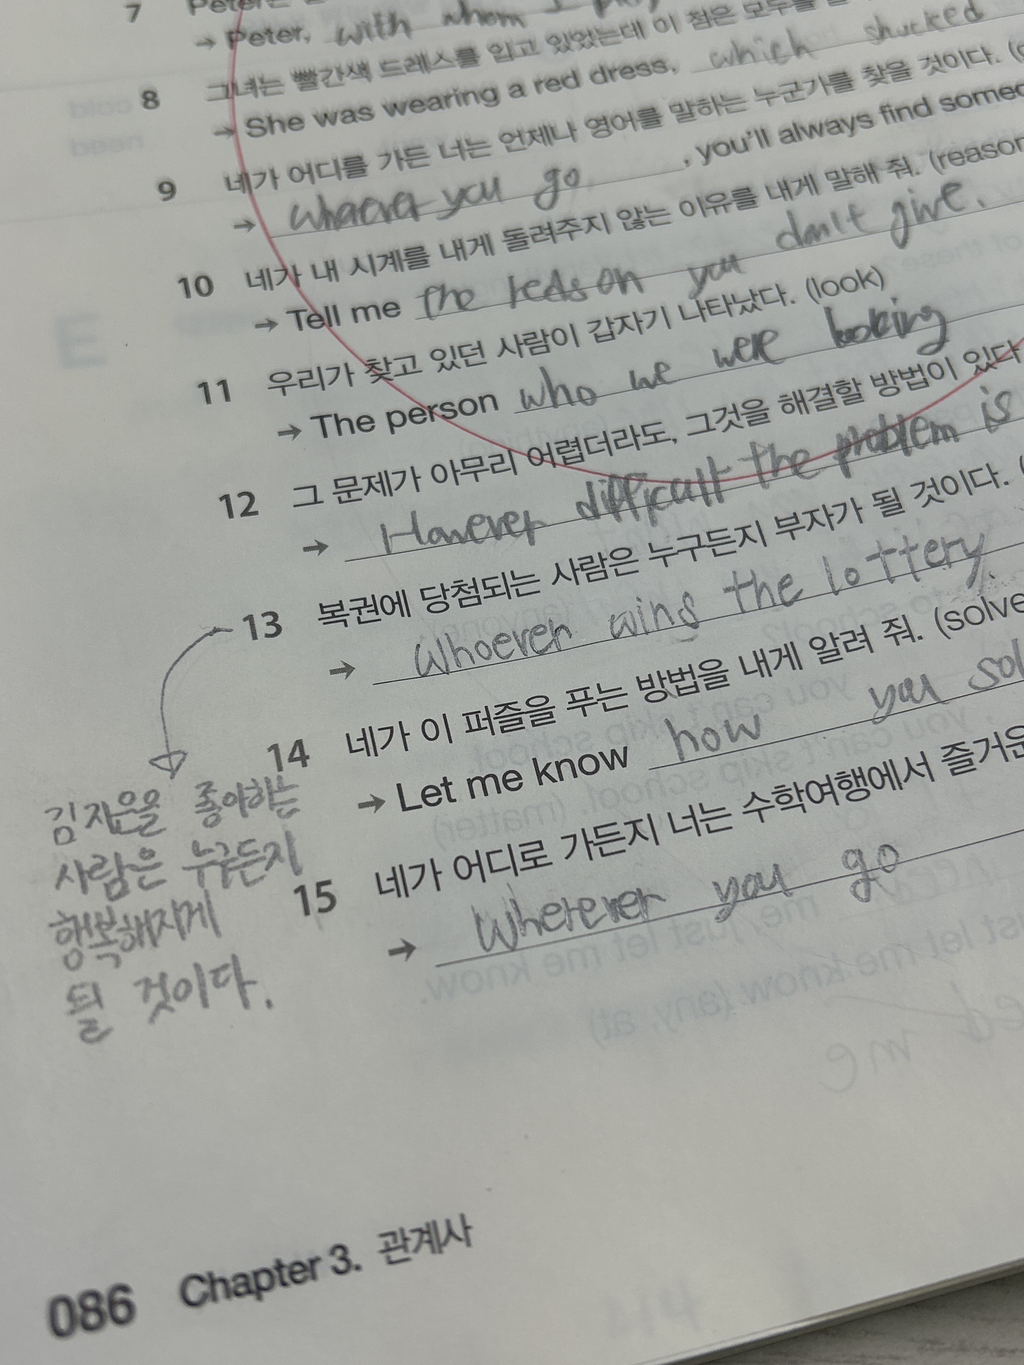 7
→ Peter, with whom I
8 그녀는 빨간색 드레스를 입고 있었는데 이 점은 모두를
→ She was wearing a red dress, which shucked
9 네가 어디를 가든 너는 언제나 영어를 말하는 누군가를 찾을 것이다.
→ wherever you go, you'll always find someo
10 네가 내 시계를 내게 돌려주지 않는 이유를 내게 말해 줘. (reason
→ Tell me the reason you don't give.
11 우리가 찾고 있던 사람이 갑자기 나타났다. (look)
→ The person who we were looking
12 그 문제가 아무리 어렵더라도, 그것을 해결할 방법이 있다
→ However difficult the problem is
13 복권에 당첨되는 사람은 누구든지 부자가 될 것이다. (
→ Whoever wins the lottery.
14 네가 이 퍼즐을 푸는 방법을 내게 알려 줘. (solve
→ Let me know how you sol
15 네가 어디로 가든지 너는 수학여행에서 즐거운
→ Wherever you go
김지은을 좋아하는
사람은 누구든지
행복해지게
될 것이다.
086 Chapter 3. 관계사